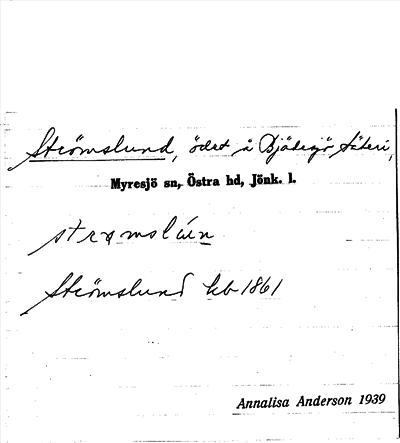 Strömslund, ödet å Bjädesjö Säteri,
Myresjö sn, Östra hd, Jönk. l.
strømslún
Strömslund kb 1861
Annalisa Anderson 1939